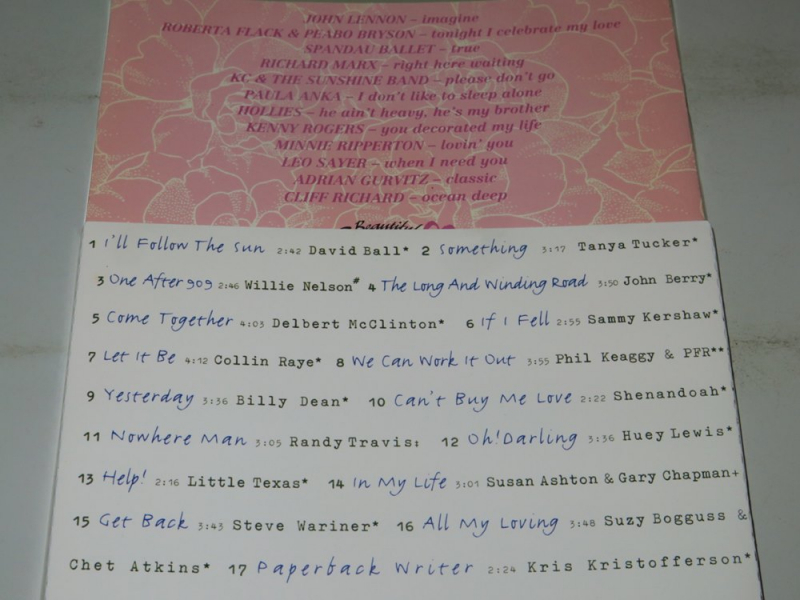 JOHN LENNON – imagine
ROBERTA FLACK & PEABO BRYSON – tonight I celebrate my love
SPANDAU BALLET – true
RICHARD MARX – right here waiting
KC & THE SUNSHINE BAND – please don't go
PAULA ANKA – I don't like to sleep alone
HOLLIES – he ain't heavy, he's my brother
KENNY ROGERS – you decorated my life
MINNIE RIPPERTON – lovin' you
LEO SAYER – when I need you
ADRIAN GURVITZ – classic
CLIFF RICHARD – ocean deep
Beautiful
1 I'll Follow The Sun 2:42 David Ball* 2 Something 3:17 Tanya Tucker*
3 One After 909 2:46 Willie Nelson# 4 The Long And Winding Road 3:50 John Berry*
5 Come Together 4:03 Delbert McClinton* 6 If I Fell 2:55 Sammy Kershaw*
7 Let It Be 4:12 Collin Raye* 8 We Can Work It Out 3:55 Phil Keaggy & PFR**
9 Yesterday 3:36 Billy Dean* 10 Can't Buy Me Love 2:22 Shenandoah*
11 Nowhere Man 3:05 Randy Travis‡ 12 Oh! Darling 3:36 Huey Lewis*
13 Help! 2:16 Little Texas* 14 In My Life 3:01 Susan Ashton & Gary Chapman+
15 Get Back 3:43 Steve Wariner* 16 All My Loving 3:48 Suzy Bogguss &
Chet Atkins* 17 Paperback Writer 2:24 Kris Kristofferson*